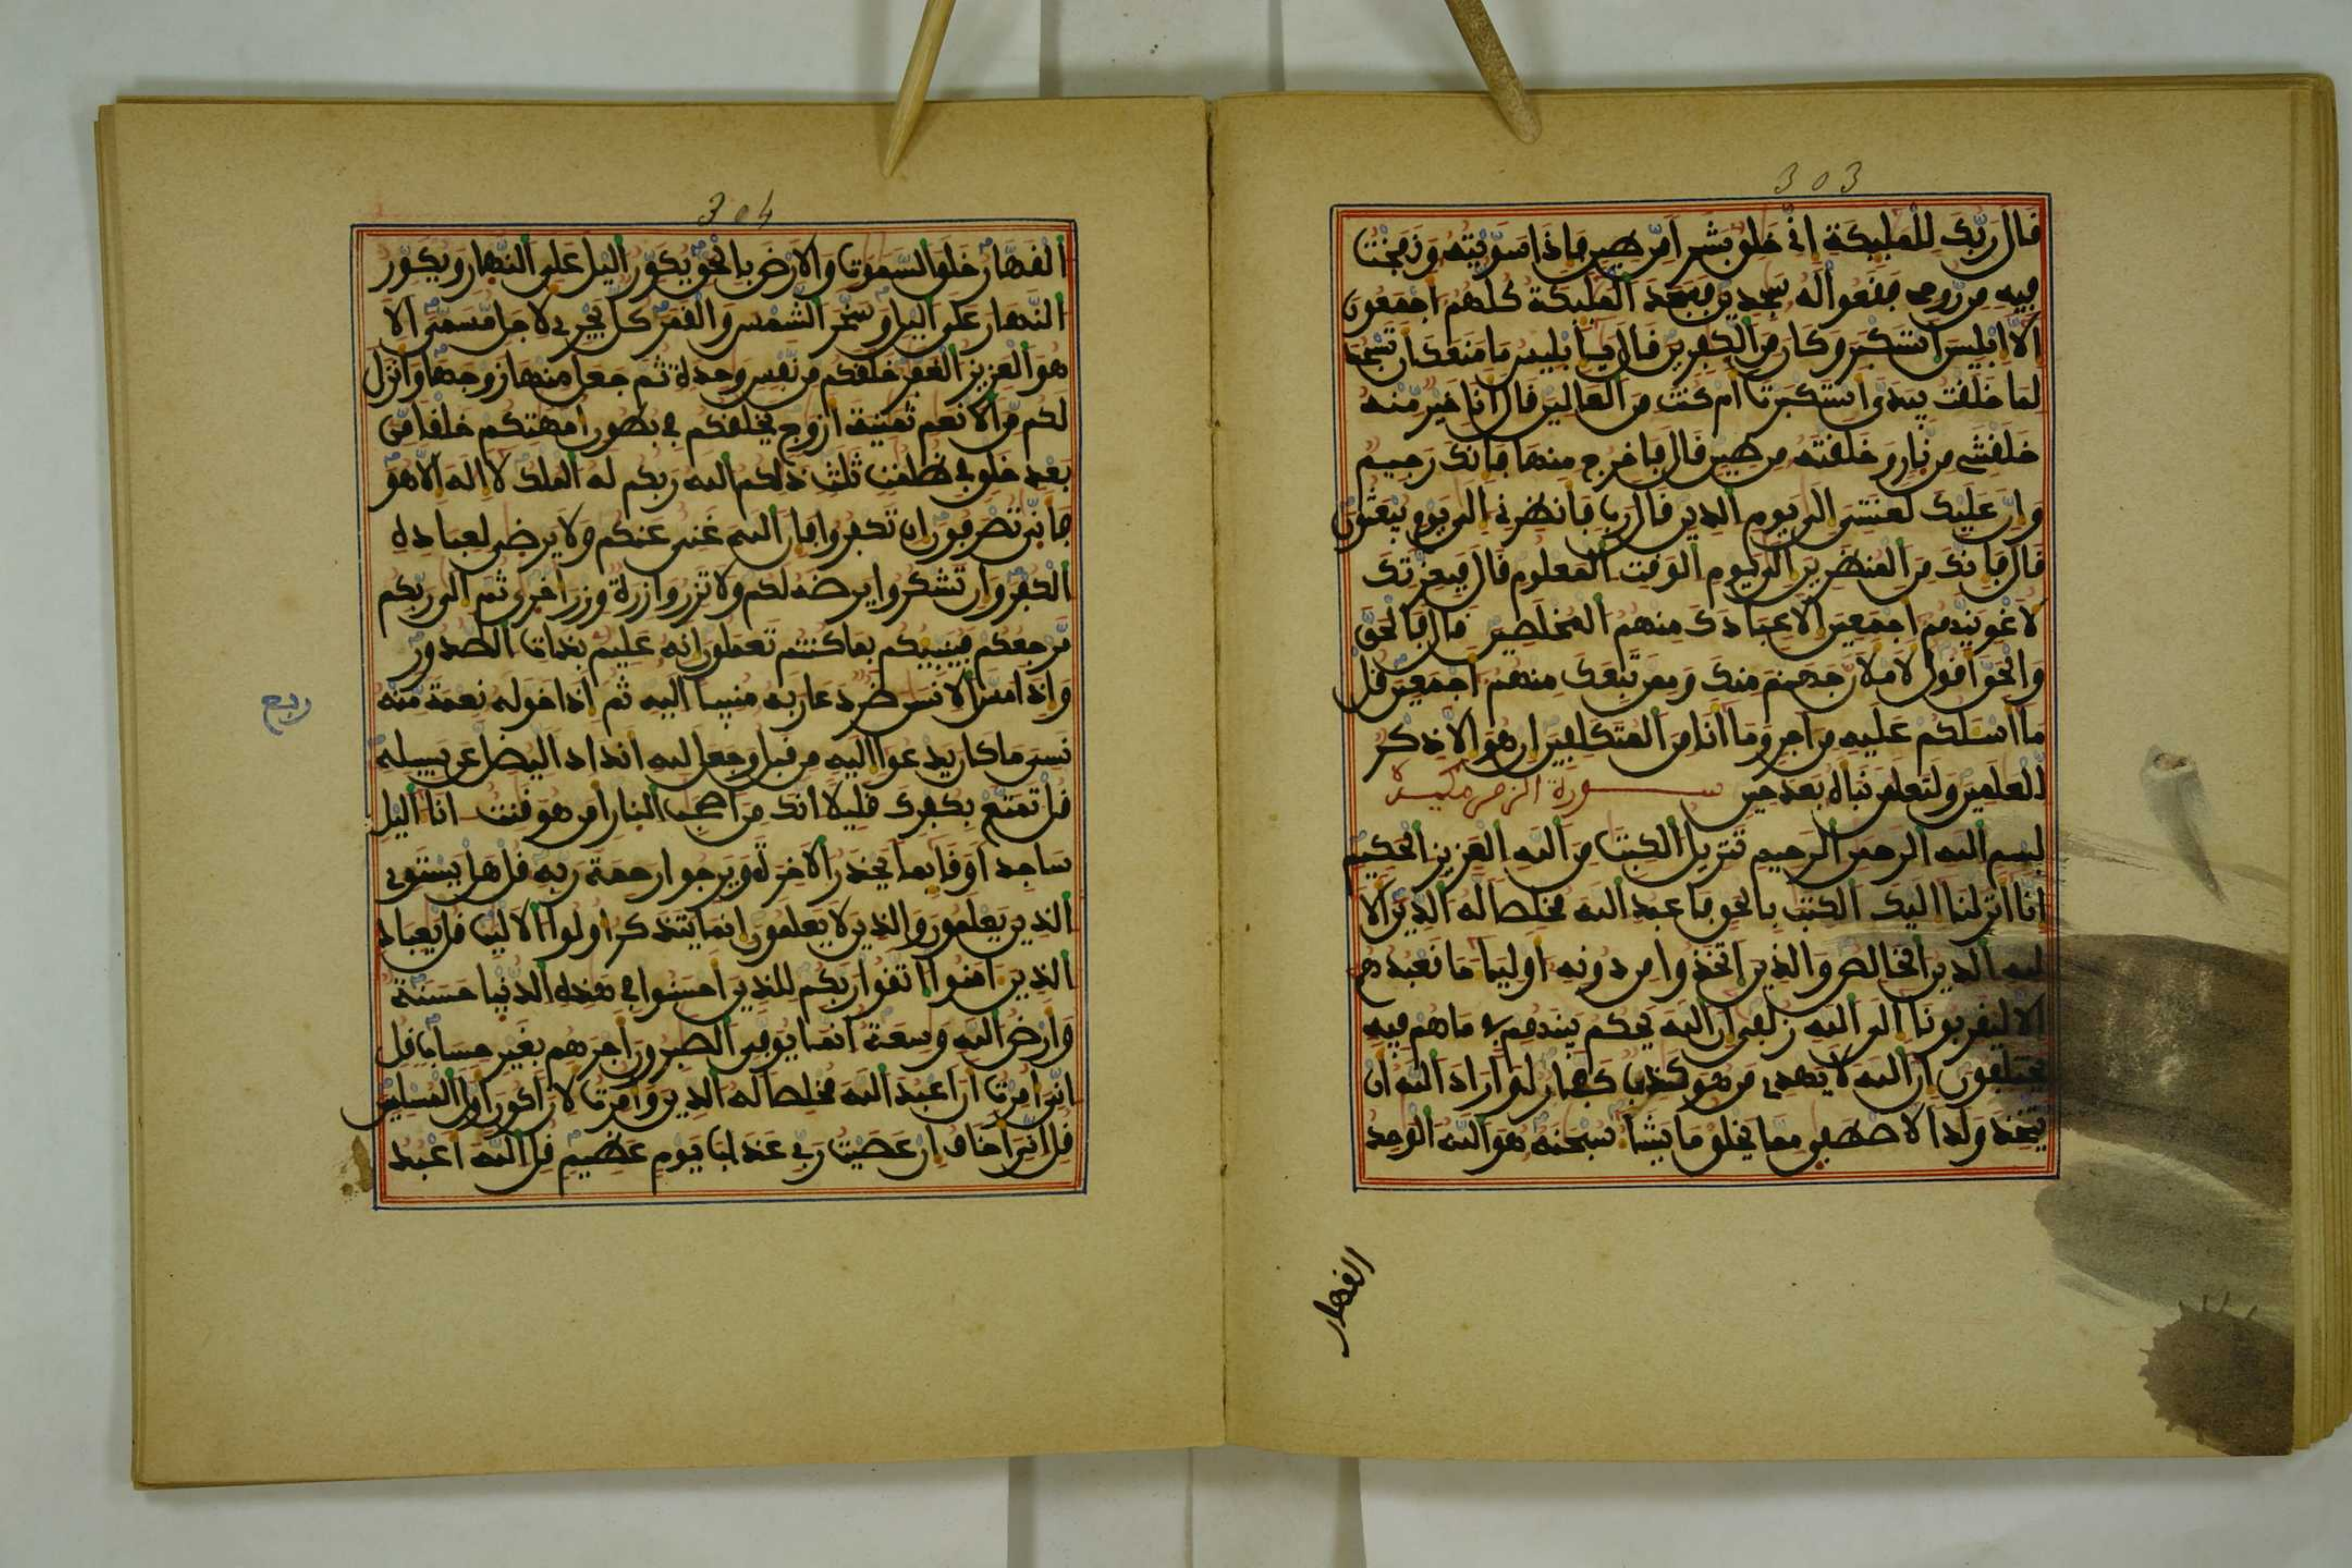 303
قال ربك للمليكة اني خلق بشرا من طين فاذا سويته ونفخت
فيه من روحي فقعوا له سجدين فسجد المليكة كلهم اجمعون
الا ابليس استكبر وكان من الكفرين قال يابليس ما منعك ان تسجد
لما خلقت بيدي استكبرت ام كنت من العالين قال انا خير منه
خلقتني من نار وخلقته من طين قال فاخرج منها فانك رجيم
وان عليك لعنتي الى يوم الدين قال رب فانظرني الى يوم يبعثون
قال فانك من المنظرين الى يوم الوقت المعلوم قال فبعزتك
لاغوينهم اجمعين الا عبادك منهم المخلصين قال فالحق
والحق اقول لاملان جهنم منك وممن تبعك منهم اجمعين قل
ما اسلكم عليه من اجر وما انا من المتكلفين ان هو الا ذكر
للعلمين ولتعلمن نباه بعد حين سورة الزمر مكية
بسم الله الرحمن الرحيم تنزيل الكتب من الله العزيز الحكيم
انا انزلنا اليك الكتب بالحق فاعبد الله مخلصا له الدين الا
لله الدين الخالص والذين اتخذوا من دونه اوليا ما نعبدهم
الا ليقربونا الى الله زلفى ان الله يحكم بينهم في ما هم فيه
يختلفون ان الله لا يهدي من هو كذب كفار لو اراد الله ان
يتخذ ولدا لاصطفى مما يخلق ما يشا سبحنه هو الله الوحد
القهار
304
القهار خلق السموت والارض بالحق يكور اليل على النهار ويكور
النهار على اليل وسخر الشمس والقمر كل يجري لاجل مسمى الا
هو العزيز الغفر خلقكم من نفس وحدة ثم جعل منها زوجها وانزل
لكم من الانعم ثمنية ازوج يخلقكم في بطون امهتكم خلقا من
بعد خلق في ظلمت ثلث ذلكم الله ربكم له الملك لا اله الا هو
فانى تصرفون ان تكفروا فان الله غني عنكم ولا يرضى لعباده
الكفر وان تشكروا يرضه لكم ولا تزر وازرة وزر اخرى ثم الى ربكم
مرجعكم فينبيكم بما كنتم تعملون انه عليم بذات الصدور
واذا مس الانسن ضر دعا ربه منيبا اليه ثم اذا خوله نعمة منه
نسي ما كان يدعوا اليه من قبل وجعل لله اندادا ليضل عن سبيله
قل تمتع بكفرك قليلا انك من اصحب النار امن هو قنت انا اليل
ساجدا وقايما يحذر الاخرة ويرجوا رحمة ربه قل هل يستوي
الذين يعلمون والذين لا يعلمون انما يتذكر اولوا الالبب قل يعباد
الذين امنوا اتقوا ربكم للذين احسنوا في هذه الدنيا حسنة
وارض الله وسعة انما يوفى الصبرون اجرهم بغير حساب قل
اني امرت ان اعبد الله مخلصا له الدين وامرت لان اكون اول المسلمين
قل اني اخاف ان عصيت ربي عذاب يوم عظيم قل الله اعبد
ربع